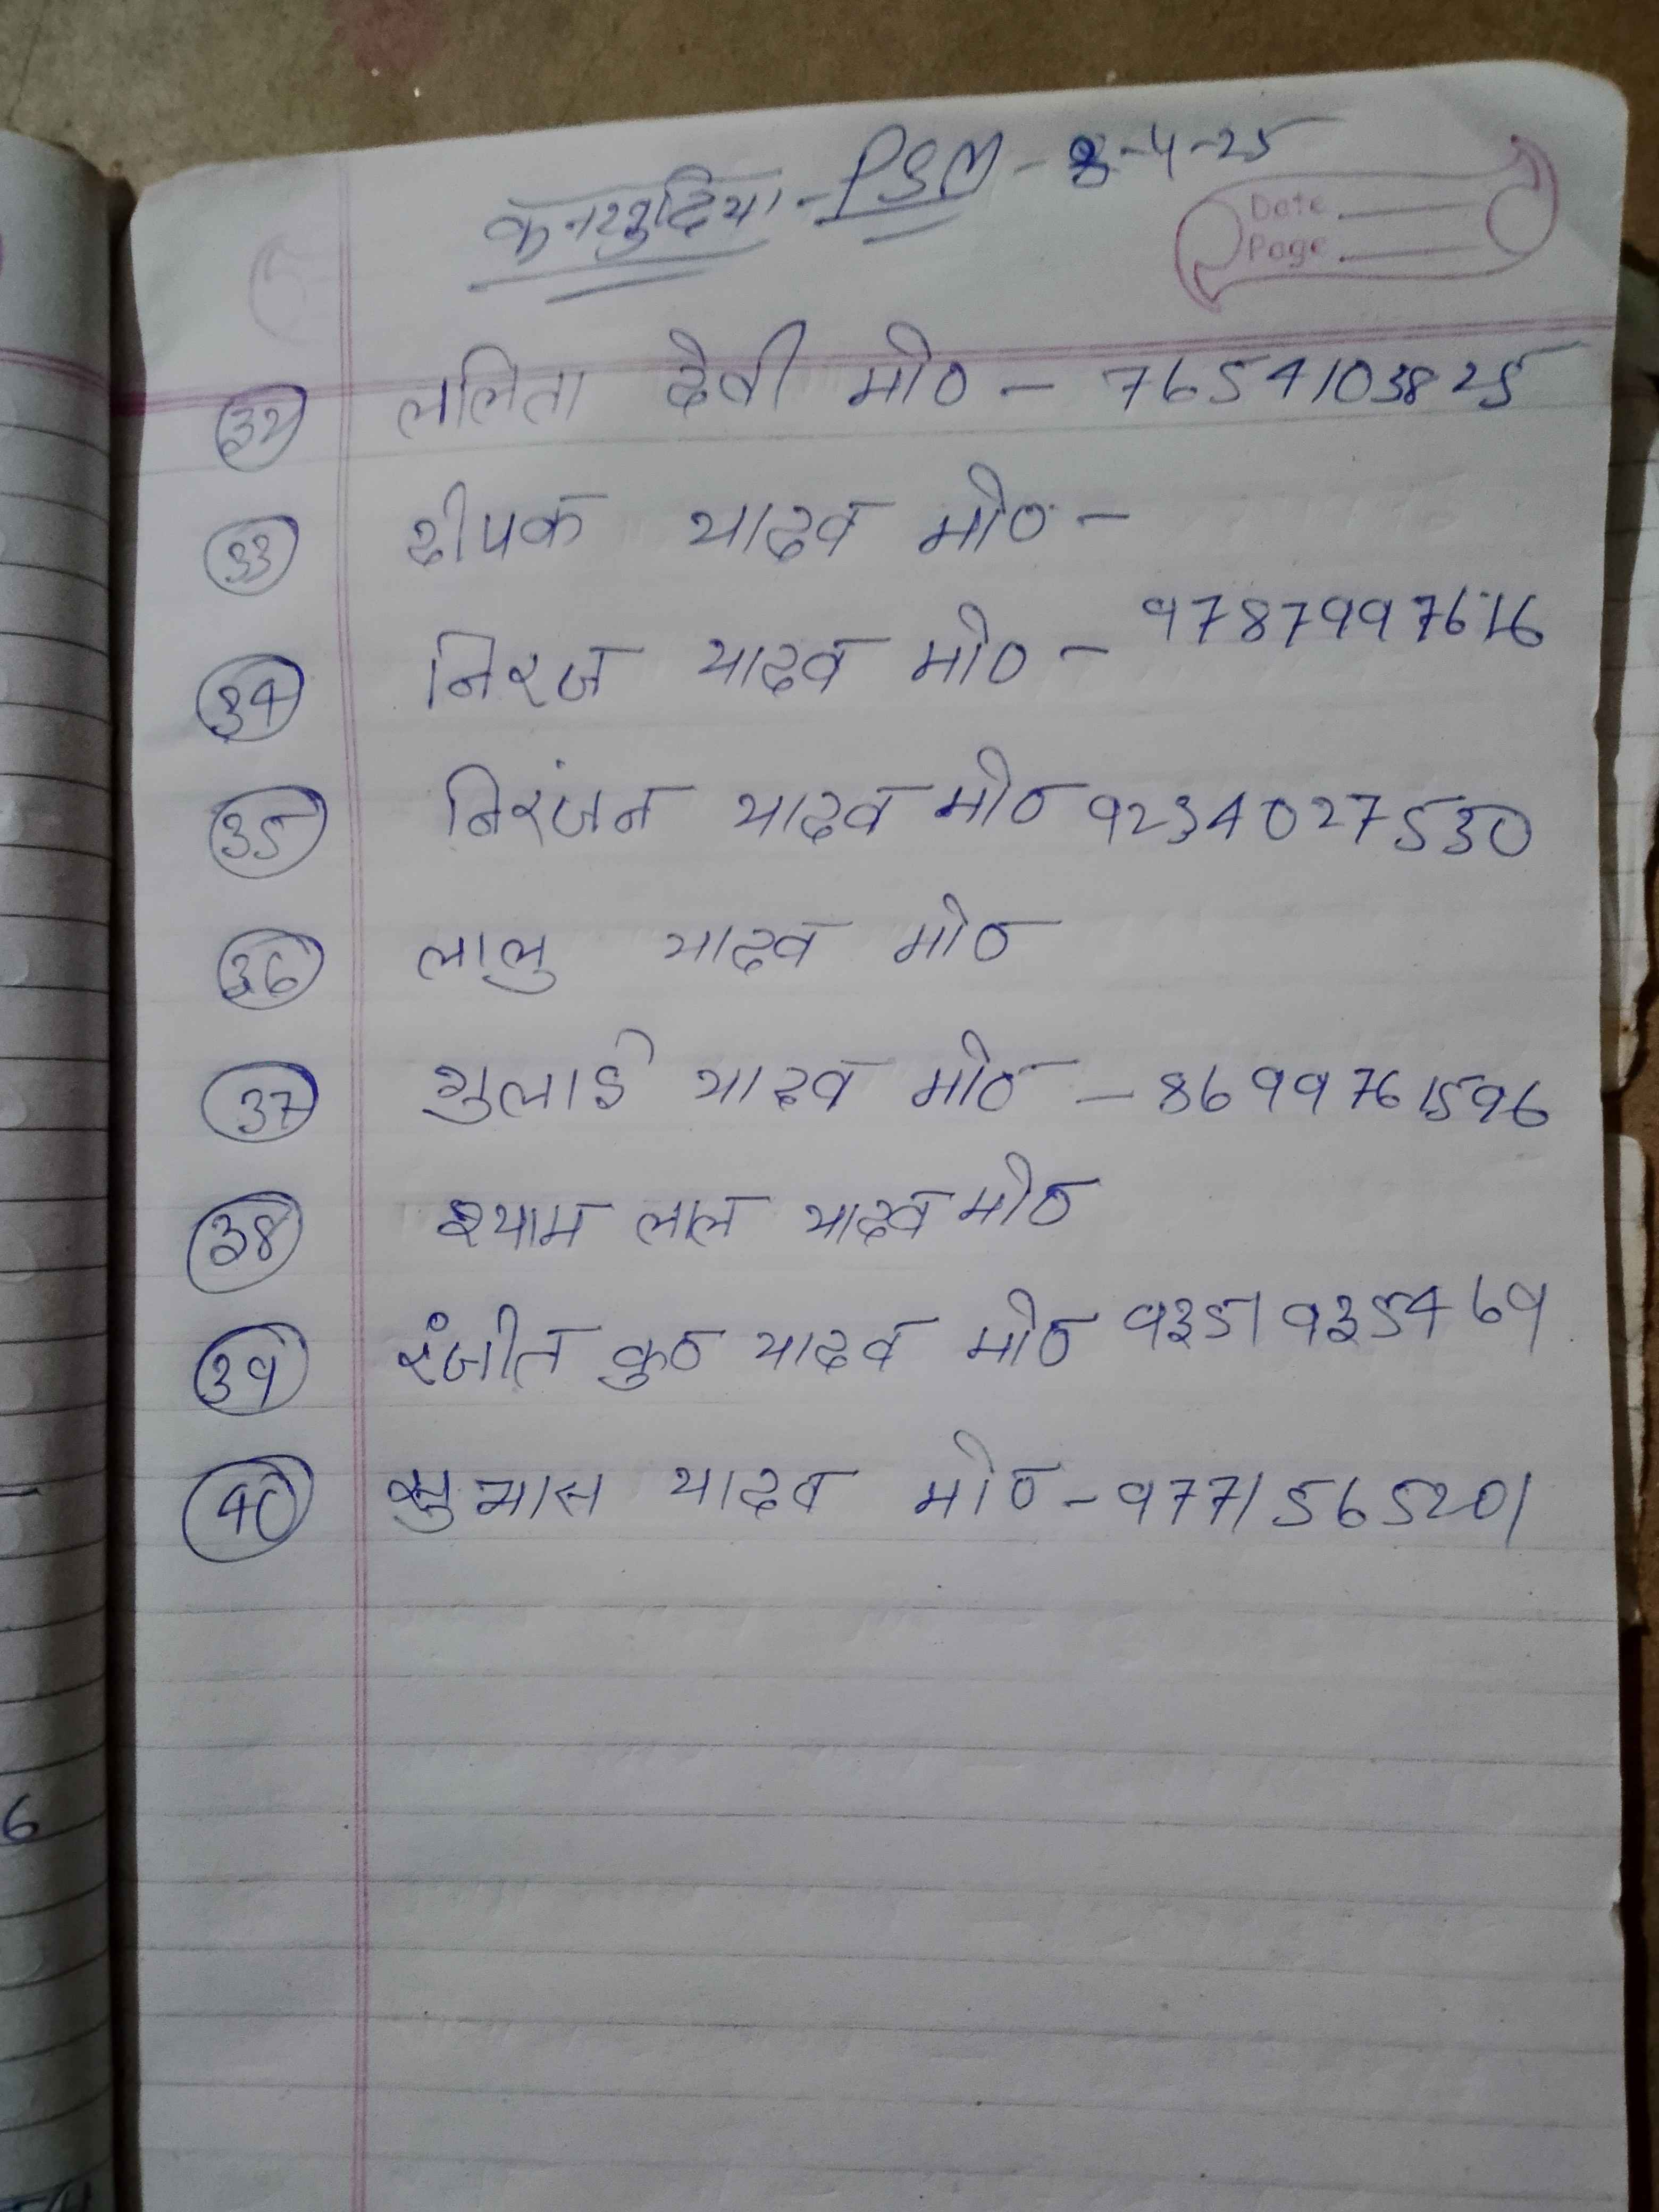 कनखुदिया - PSM - 8-4-25
Date
Page
32 ललिता देवी मो० - 7654103825
33 दीपक यादव मो० -
34 निरज यादव मो० - 9787997616
35 निरंजन यादव मो० 9234027530
36 लालु यादव मो०
37 गुलाई यादव मो० - 8699761596
38 श्याम लाल यादव मो०
39 रंजीत कु० यादव मो० 9351935469
40 सुभास यादव मो० - 9771565201
6